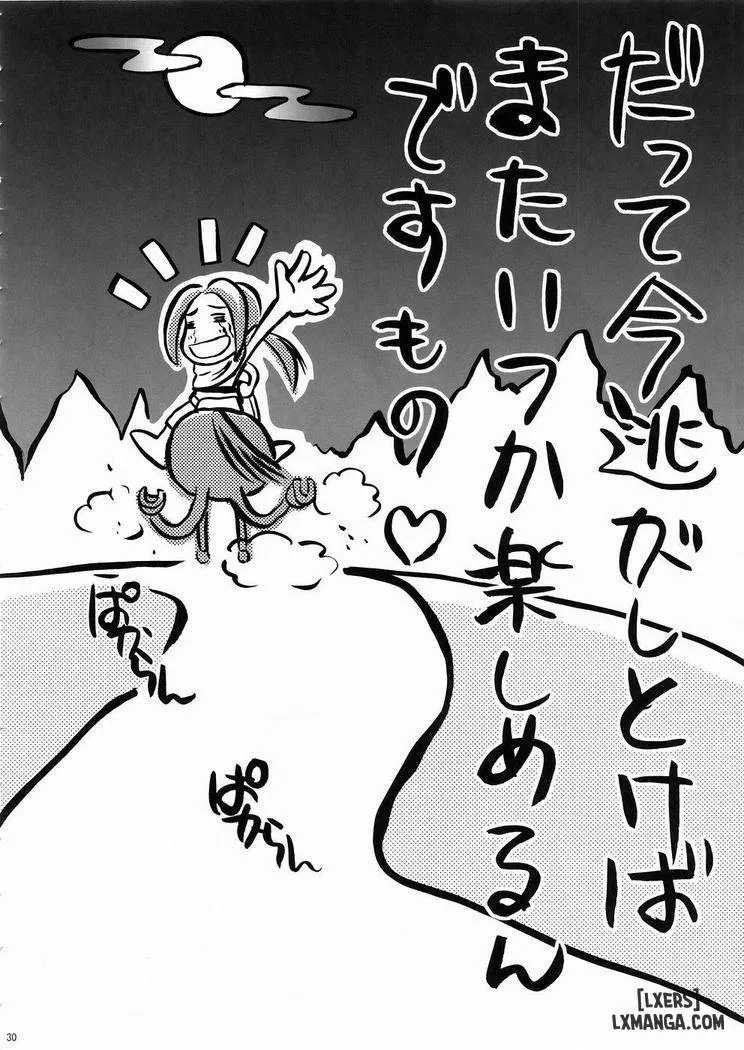 だって今逃がしとけば
またいつか楽しめるん
ですもの♡
ぱからっん
ぱからん
30
[LXERS]
LXMANGA.COM